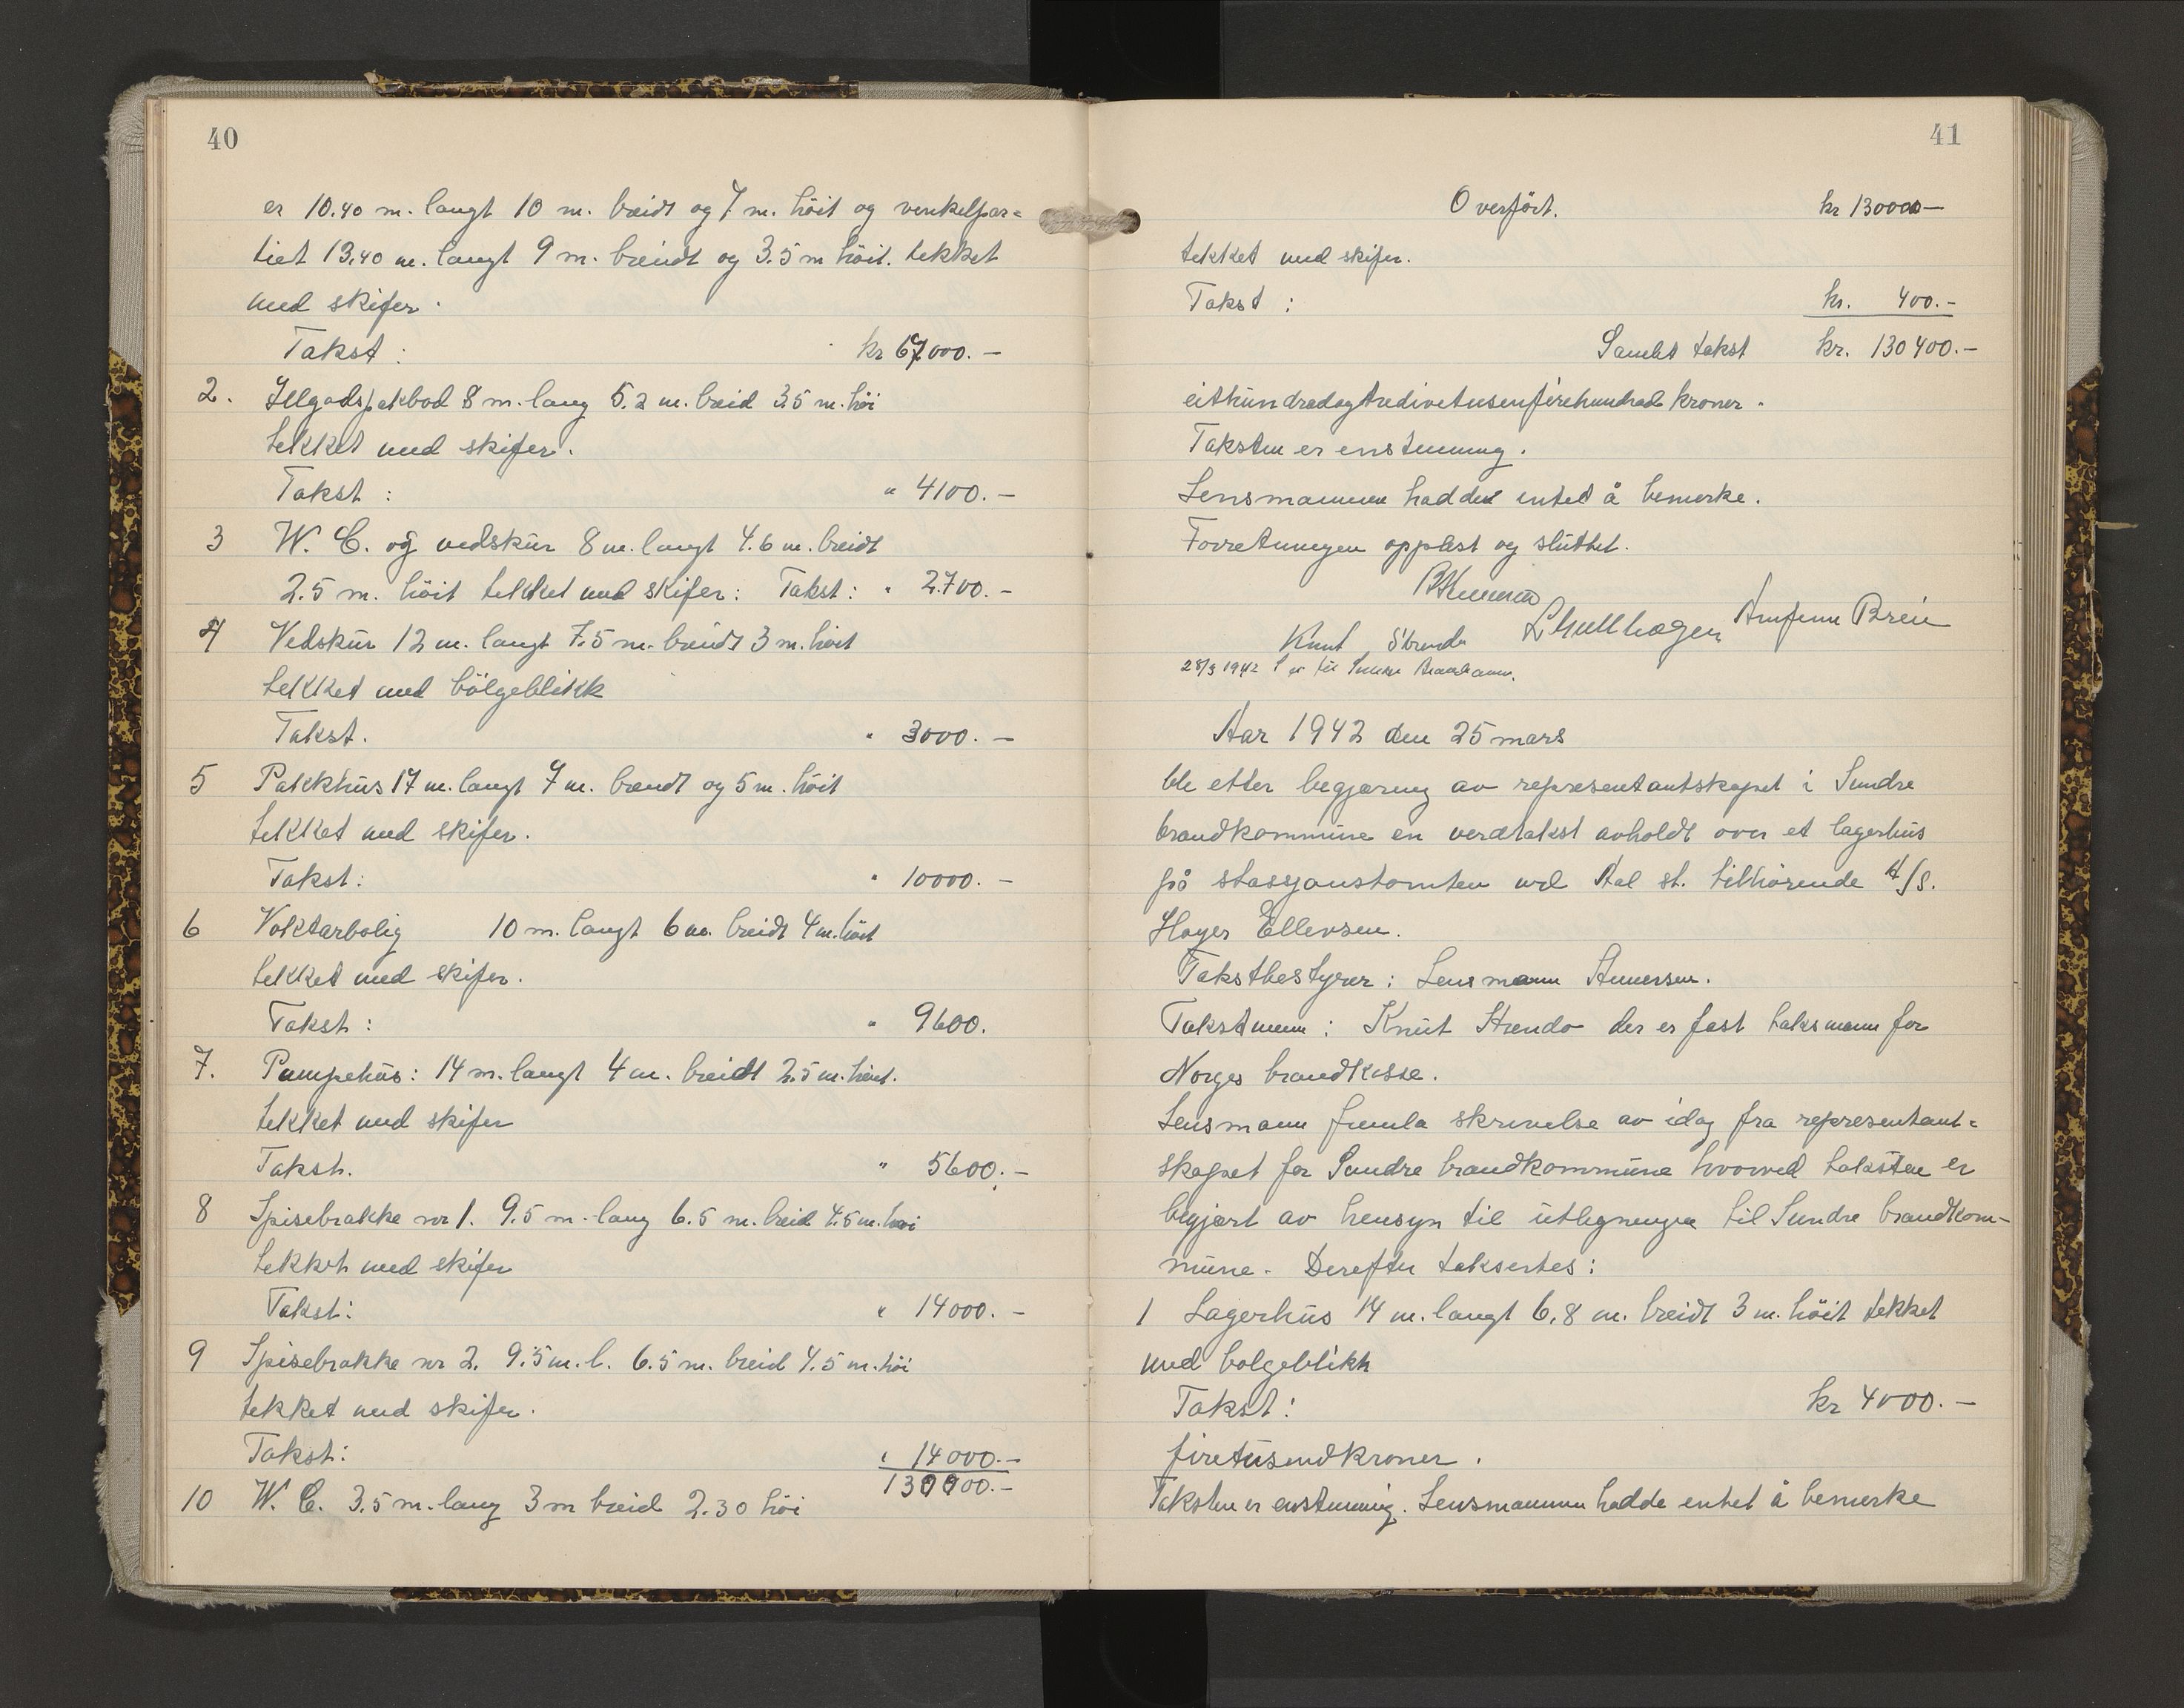 40
er 10.40 m. langt 10 m. breidt og 7 m. höit og venkelpar=
tiet 13.40 m. langt 9 m. breidt og 3.5 m höit. tekket
med skifer.
Takst: kr 67000.—
2. Ilgodspakbod 8 m. lang 5.2 m. breid 3.5 m. höi
tekket med skifer.
Takst: " 4100.—
3 W. C. og vedskur 8 m. langt 4.6 m. breidt
2.5 m. höit tekket med skifer: Takst: " 2.700.—
4 Vedskur 12 m. langt 7.5 m. breidt 3 m. höit
tekket med bölgeblikk
Takst. " 3000.—
5 Pakkhus 17 m. langt 7 m. breidt og 5 m. höit
tekket med skifer.
Takst: " 10000.—
6 Voktarbolig 10 m. langt 6 m. breidt 4 m. höit
tekket med skifer.
Takst: " 9600.
7. Pumpehus: 14 m. langt 4 m. breidt 2.5 m. höit.
tekket med skifer
Takst. " 5600.—
8 Spisebrakke nr 1. 9.5 m. lang 6.5 m. breid 4.5 m. höi
tekket med skifer
Takst: " 14000.—
9 Spisebrakke nr 2. 9.5 m. l. 6.5 m. breid 4.5 m. höi
tekket med skifer.
Takst: " 14000.—
130000.—
10 W. C. 3.5 m. lang 3 m breid 2.30 höi
41
Overfört. kr 130000—
tekket med skifer.
Takst: kr. 400.—
Samlet takst kr. 130400.—
eithundradogtredivetusenfirehundrad kroner.
Taksten er enstemmig.
Lensmannen hadde intet å bemerke.
Forretningen opplest og sluttet.
Knut Strende L Gullhagen Arnfinn Breie
28/3 1942 til Sundre
Aar 1942 den 25 mars
ble etter begjæring av representantskapet i Sundre
brandkommune en verdtakst avholdt over et lagerhus
på stasjonstomten ved Aal st. tilhörende A/S.
Høyer Ellevsen.
Takstbestyrer: Lensmann
Takstmenn: Knut Strende der er fast taksmann for
Norges brandkasse.
Lensmann framla skrivelse av idag fra representant=
skapet for Sundre brandkommune hvorved taksten er
begjært av hensyn til utligningen til Sundre brandkom-
mune. Derefter taksertes:
1 Lagerhus 14 m. langt 6,8 m. breidt 3 m. höit tekket
med bolgeblikk
Takst: kr 4000.—
firetusendkroner.
Taksten er enstemmig. Lensmannen hadde entet å bemerke